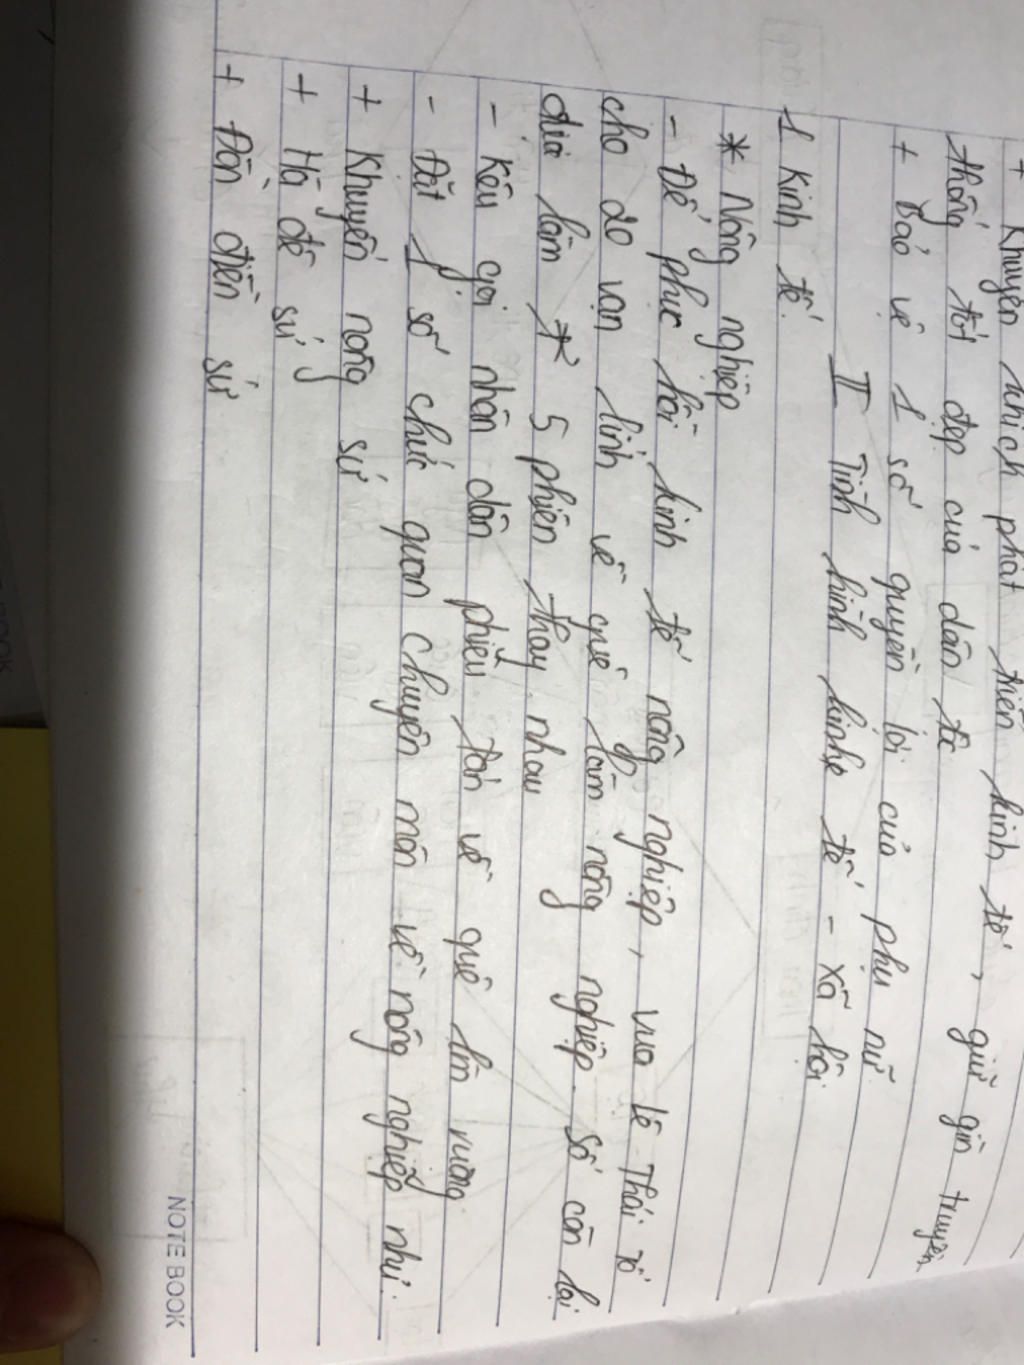 + Khuyến khích phát triển kinh tế, giữ gìn truyền
thống tốt đẹp của dân tộc
+ Bảo vệ 1 số quyền lợi của phụ nữ
II Tình hình kinh tế - xã hội
1 Kinh tế
* Nông nghiệp
- Để phục hồi kinh tế nông nghiệp, vua Lê Thái Tổ
cho 20 vạn lính về quê làm nông nghiệp. Số còn lại
chia làm 5 phiên thay nhau
- Kêu gọi nhân dân phiêu tán về quê làm ruộng
- Đặt 1 số chức quan chuyên môn về nông nghiệp như
+ Khuyến nông sứ
+ Hà đê sứ
+ Đồn điền sứ
NOTE BOOK